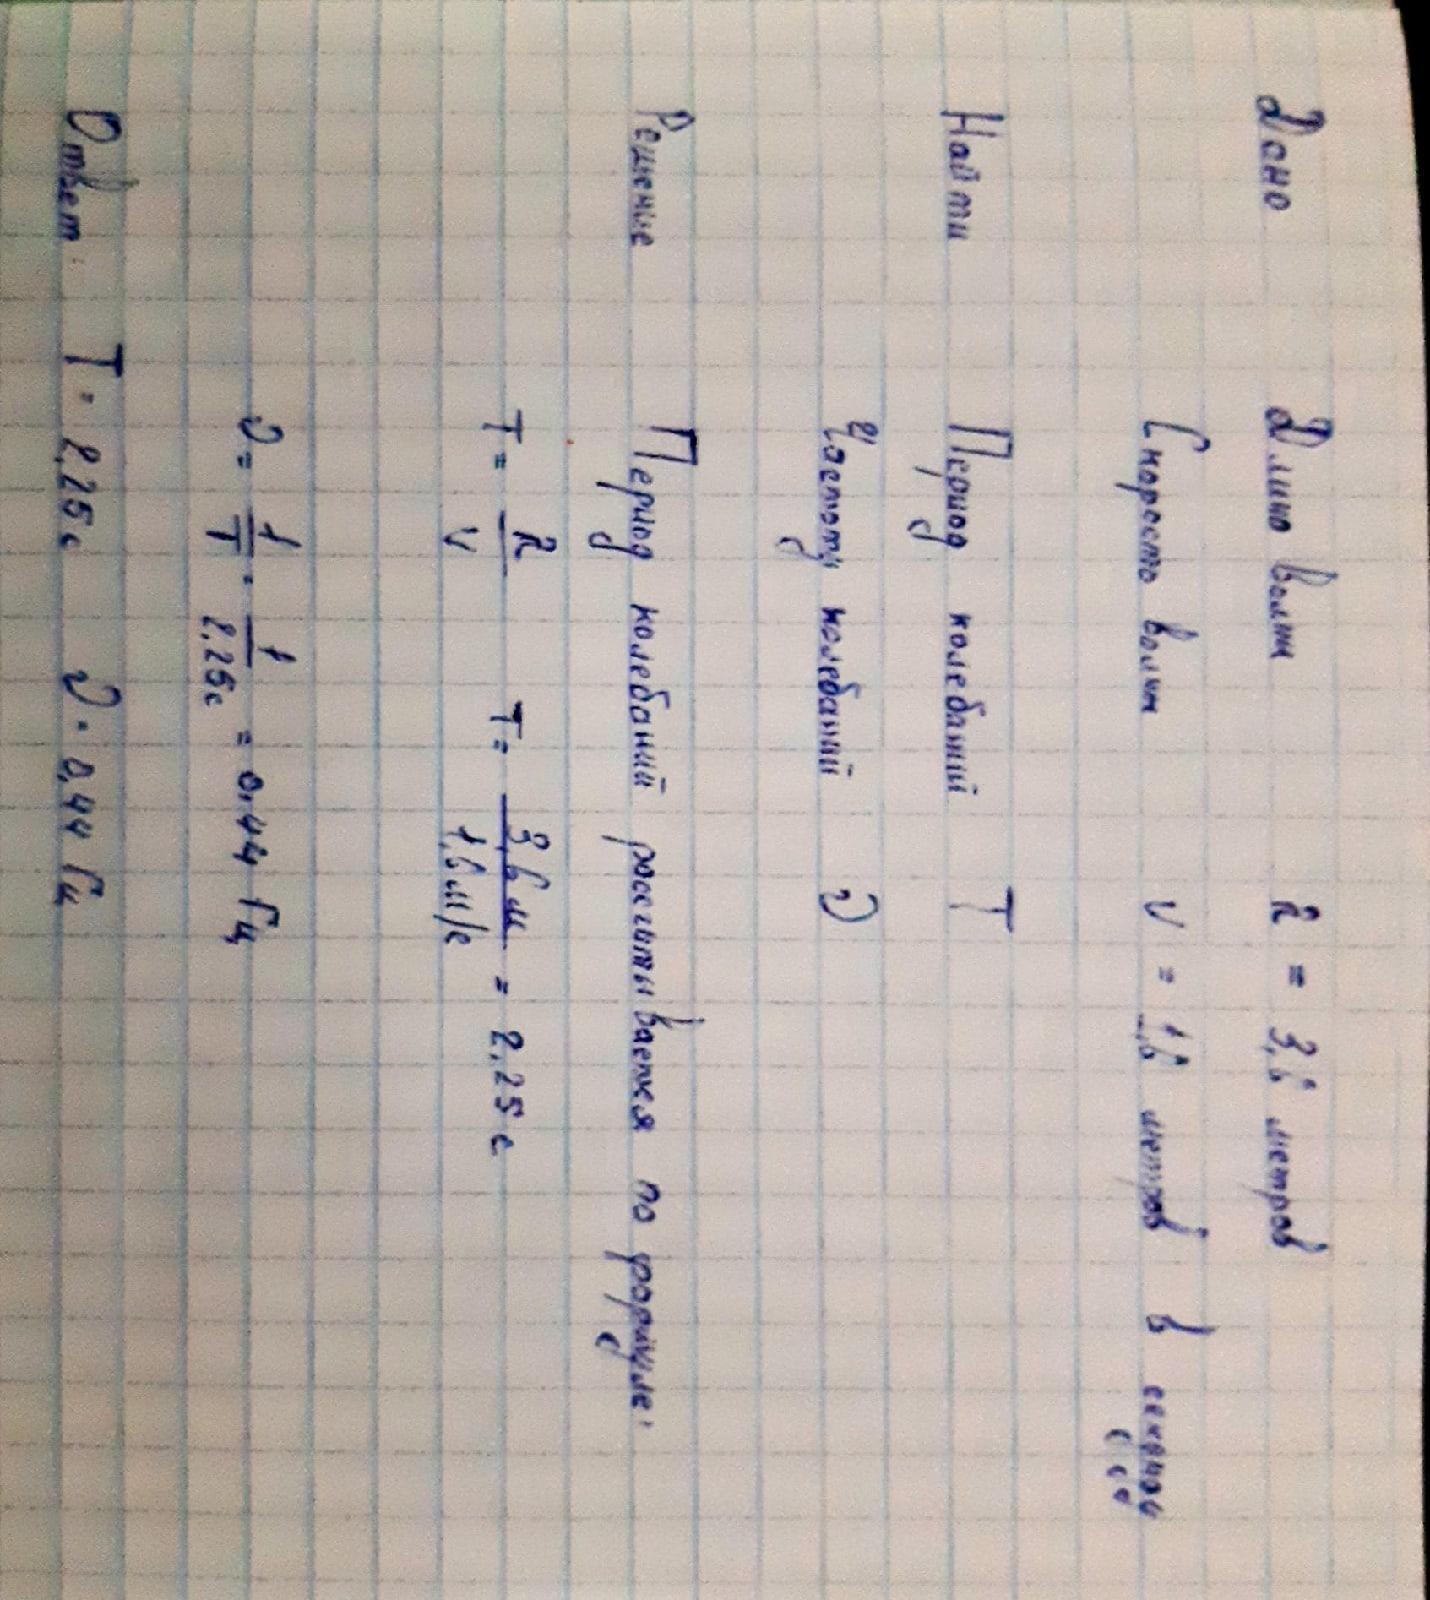 Дано Длина волны R = 3,6 метров
Скорость волны v = 1,6 метров в секунду
Найти Период колебаний T
Частоту колебаний ν
Решение Период колебаний рассчитывается по формуле:
T = R/v T = 3,6 м/1,6 м/с = 2,25 с
ν = 1/T = 1/2,25 с = 0,44 Гц
Ответ: T = 2,25 с ν = 0,44 Гц